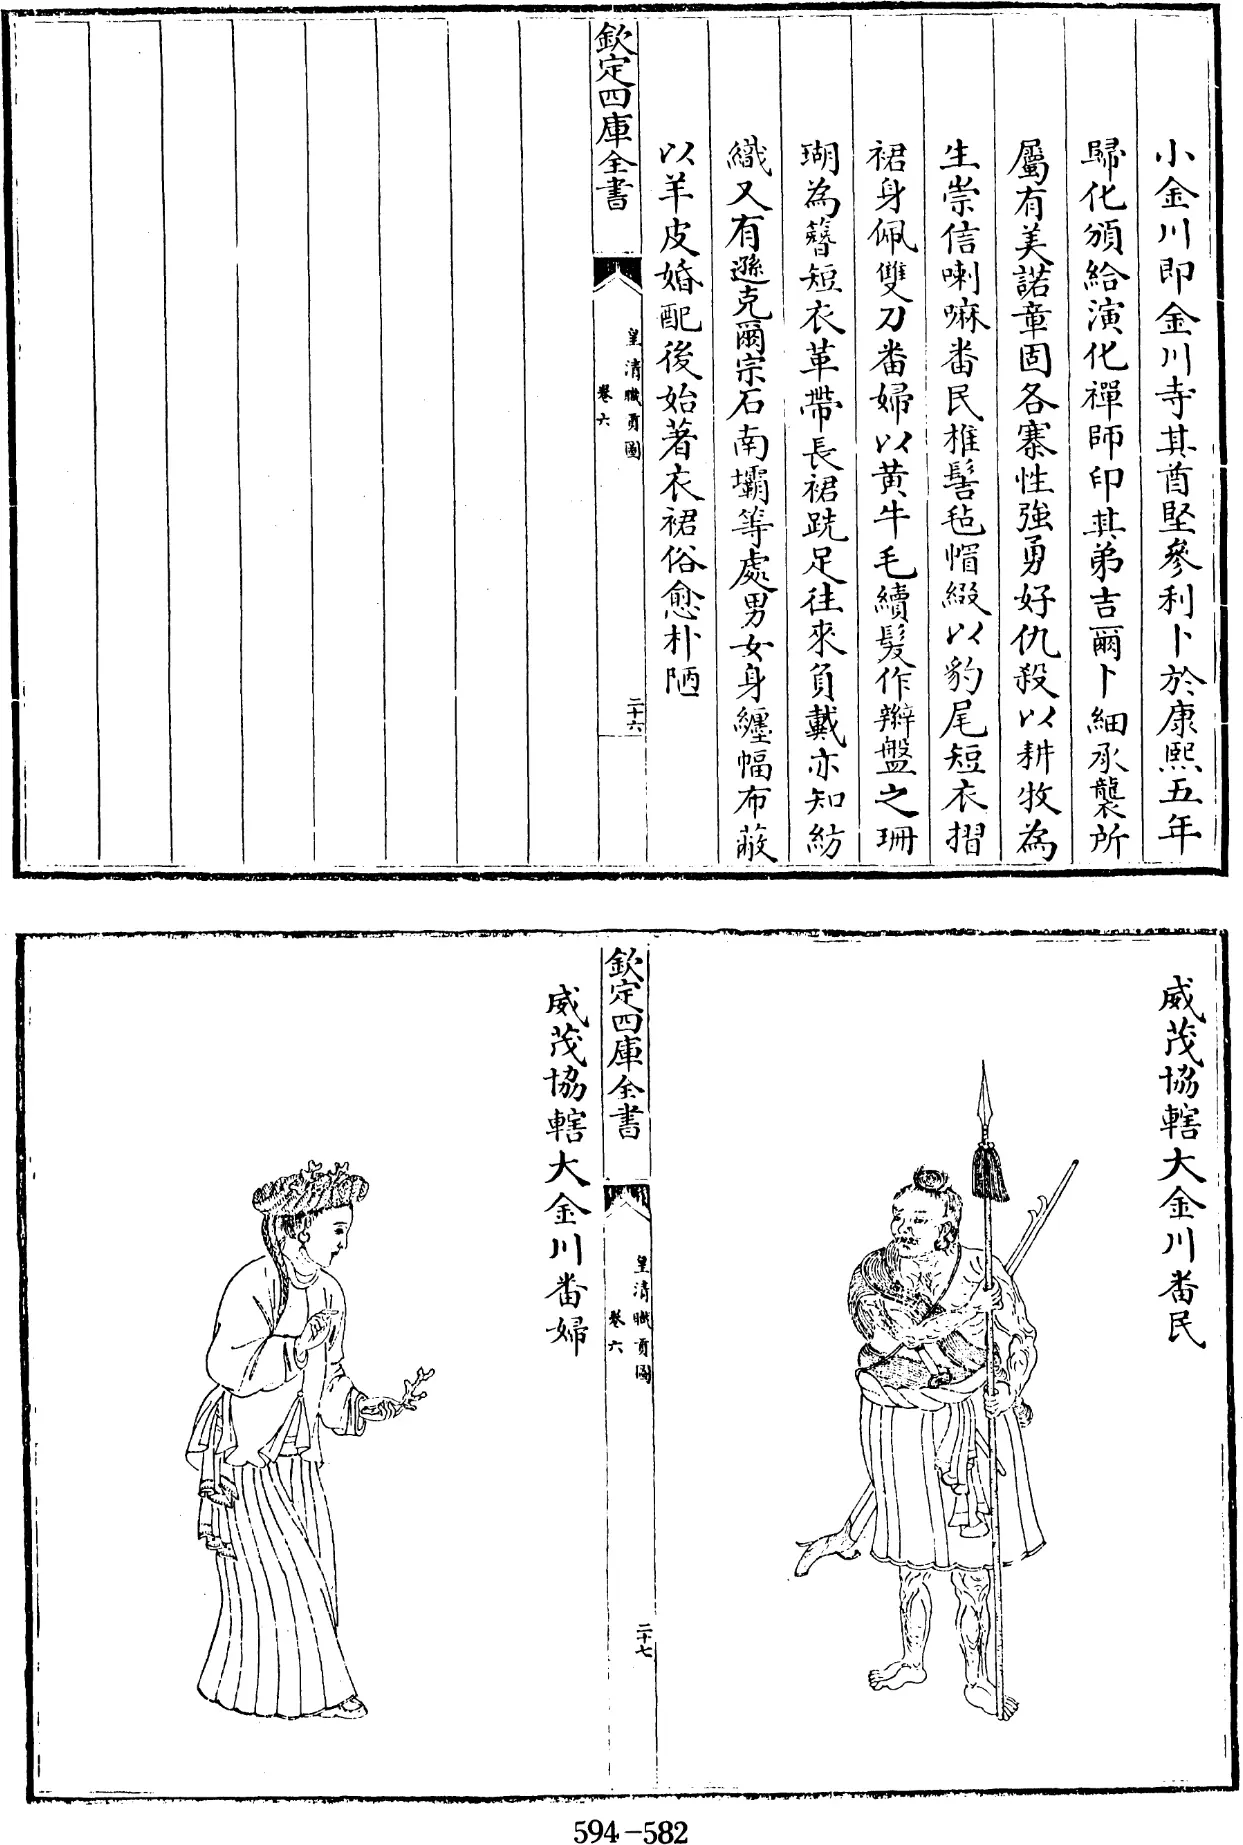 小金川即金川寺其酋堅參利卜於康熙五年
歸化頒給演化禪師印其弟吉爾卜細承襲所
屬有美諾章固各寨性強勇好仇殺以耕牧為
生崇信喇嘛番民椎髻毡帽綴以豹尾短衣摺
裙身佩雙刀番婦以黄牛毛續髮作辮盤之珊
瑚為簪短衣革帶長裙跣足往來負戴亦知紡
織又有遜克爾宗石南壩等處男女身纏幅布蔽
以羊皮婚配後始著衣裙俗愈朴陋
欽定四庫全書
皇清職貢圖
卷六
二十六
威茂協轄大金川番民
欽定四庫全書
皇清職貢圖
卷六
二十七
威茂協轄大金川番婦
594-582